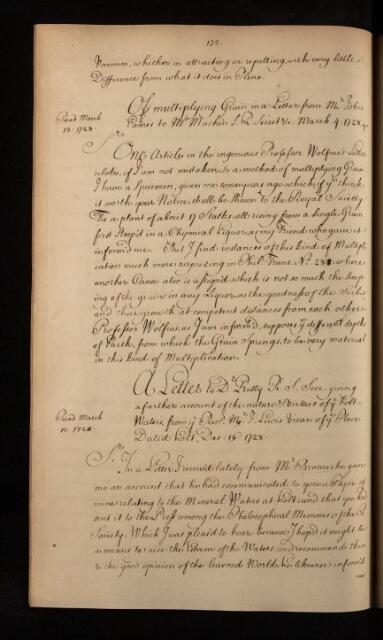 172.
Vacuum, whether in attracting or repelling, with very little
Difference from what it does in Pleno.
Of multiplying Grain in a Letter from Mr. John
Eames to Mr Machin S. R. Secret &c. March 4. 1728.
Read March
13. 1728.
Sr.
One Article in the ingenious Professor Wolfius's Letter
relates, if I am not mistaken, to a method of multiplying Grain
I have a Specimen, given me ten years ago, which if you think
it worth your Notice, shall be shewn to the Royal Society
Tis a plant of about 17 Stalks all rising from a single Grain
first steep'd in a Chymical Liquor, as my Friend who gave it
inform'd me. But I find instances of this kind of Multipli
cation much more surprizing in Phil: Trans: No. where
another Cause also is assign'd, which is not so much the steep
ing of the grains in any Liquor, as the goodness of the Soil
and their growth at competent distances from each other.
Professor Wolfius, as I am inform'd, supposes ye different depths
of Earth, from which the Grain Springs, to be very material
in this kind of Multiplication.
A Letter to Dr. Rutty R. S. Secr. giving
a farther account of the nature & virtues of ye Holt-
Waters, from ye Revd. Mr. J. Lewis Vicar of ye Place
Dated Holt, Dec. 16. 1728.
Read March
13. 1728.
Sr.
In a Letter I receiv'd lately from Mr he gave
me an account that he had communicated to you a Paper of
mine relating to the Mineral Waters at Holt: and that you had
sent it to the Press among the Philosophical Memoirs of the R.
Society. Which I was pleas'd to hear, because I hop'd it might be
a means to raise the Esteem of the Waters and recommend them
to the good opinion of the Learned World. He likewise inform'd
me